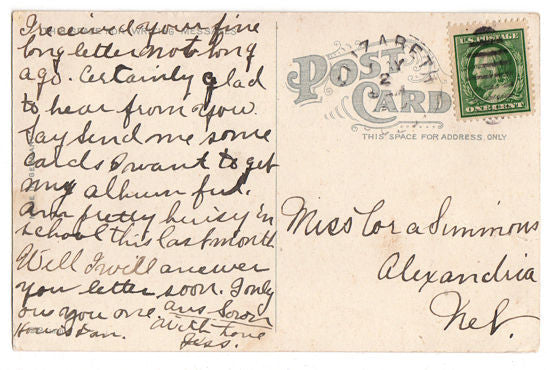 I received your fine
long letter not long
ago. Certainly glad
to hear from you.
Say send me some
cards I want to get
my album ful.
Am pretty buisy in
school this last month
Well I will answer
you letter soon. I only
ow you one ans soon
How is Dan. With love
Jess.
POST CARD
THIS SPACE FOR ADDRESS ONLY
U.S. POSTAGE
ONE CENT
Miss Cora Simmons
Alexandria
Neb.